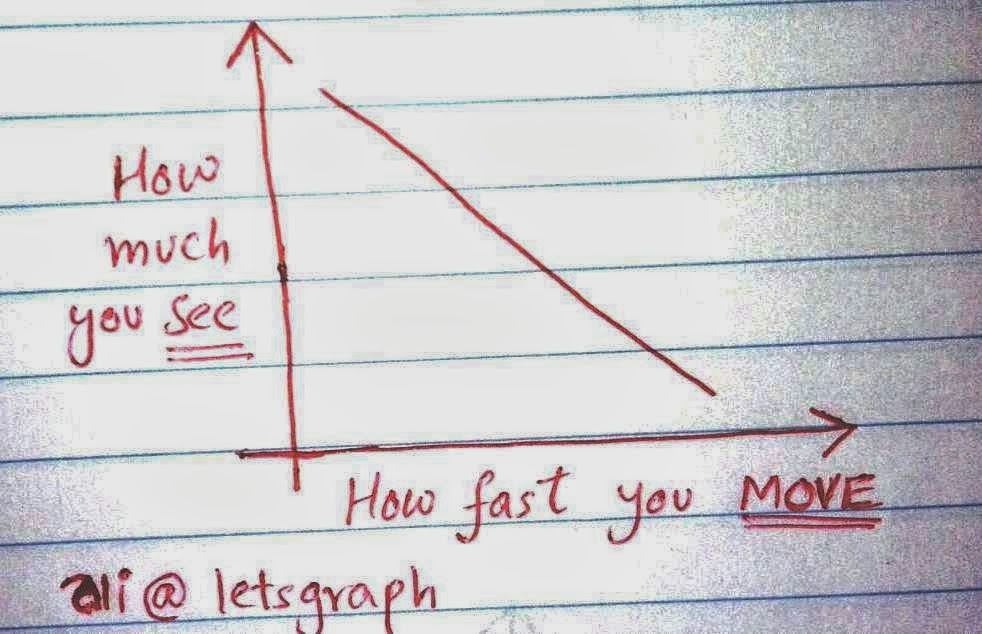 How
much
you see
How fast you MOVE
ali @ letsgraph